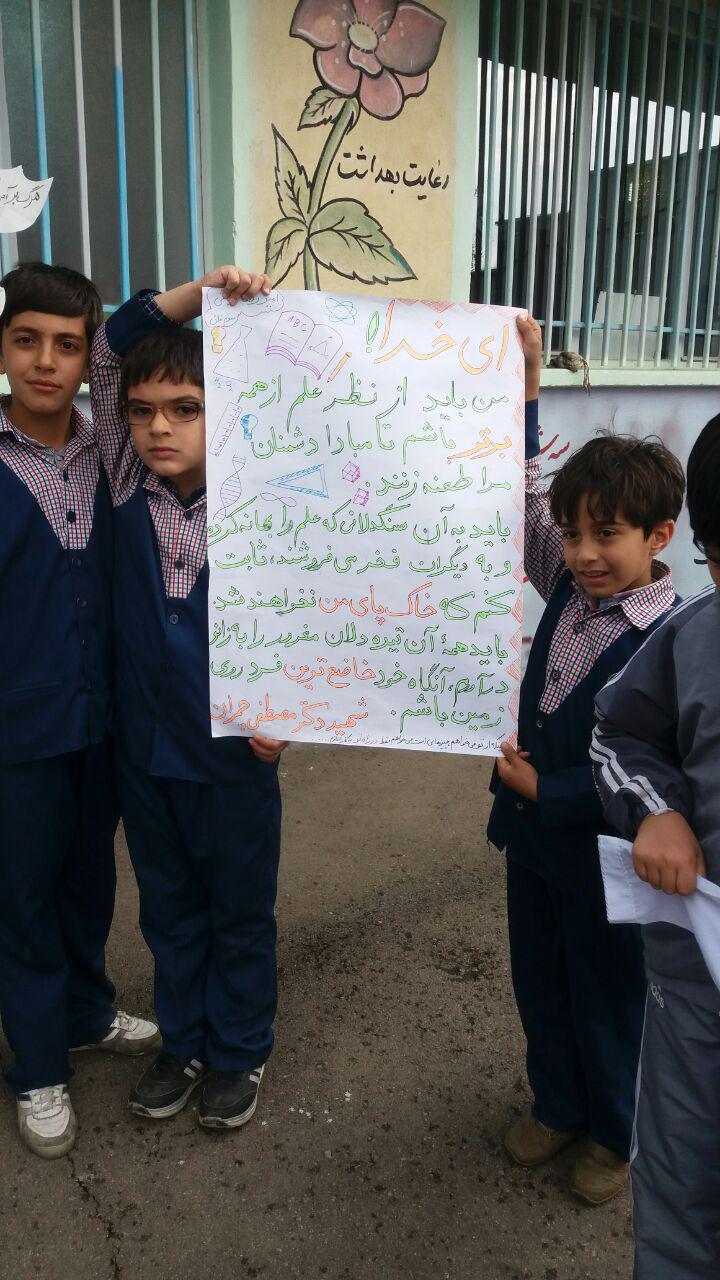 رعایت بهداشت
ای خدا!
من باید از نظر علم از همه
برتر باشم تا مبادا دشمنان
مرا طعنه زنند.
باید به آن سنگدلانی که علم را بهانه کرده
و به دیگران فخر می‌فروشند، ثابت
کنم که خاک پای من نخواهند شد.
باید همهٔ آن تیره دلان مغرور را به زانو
درآورم، آنگاه خود خاضع ترین فرد روی
زمین باشم. شهید دکتر مصطفی چمران
ABC